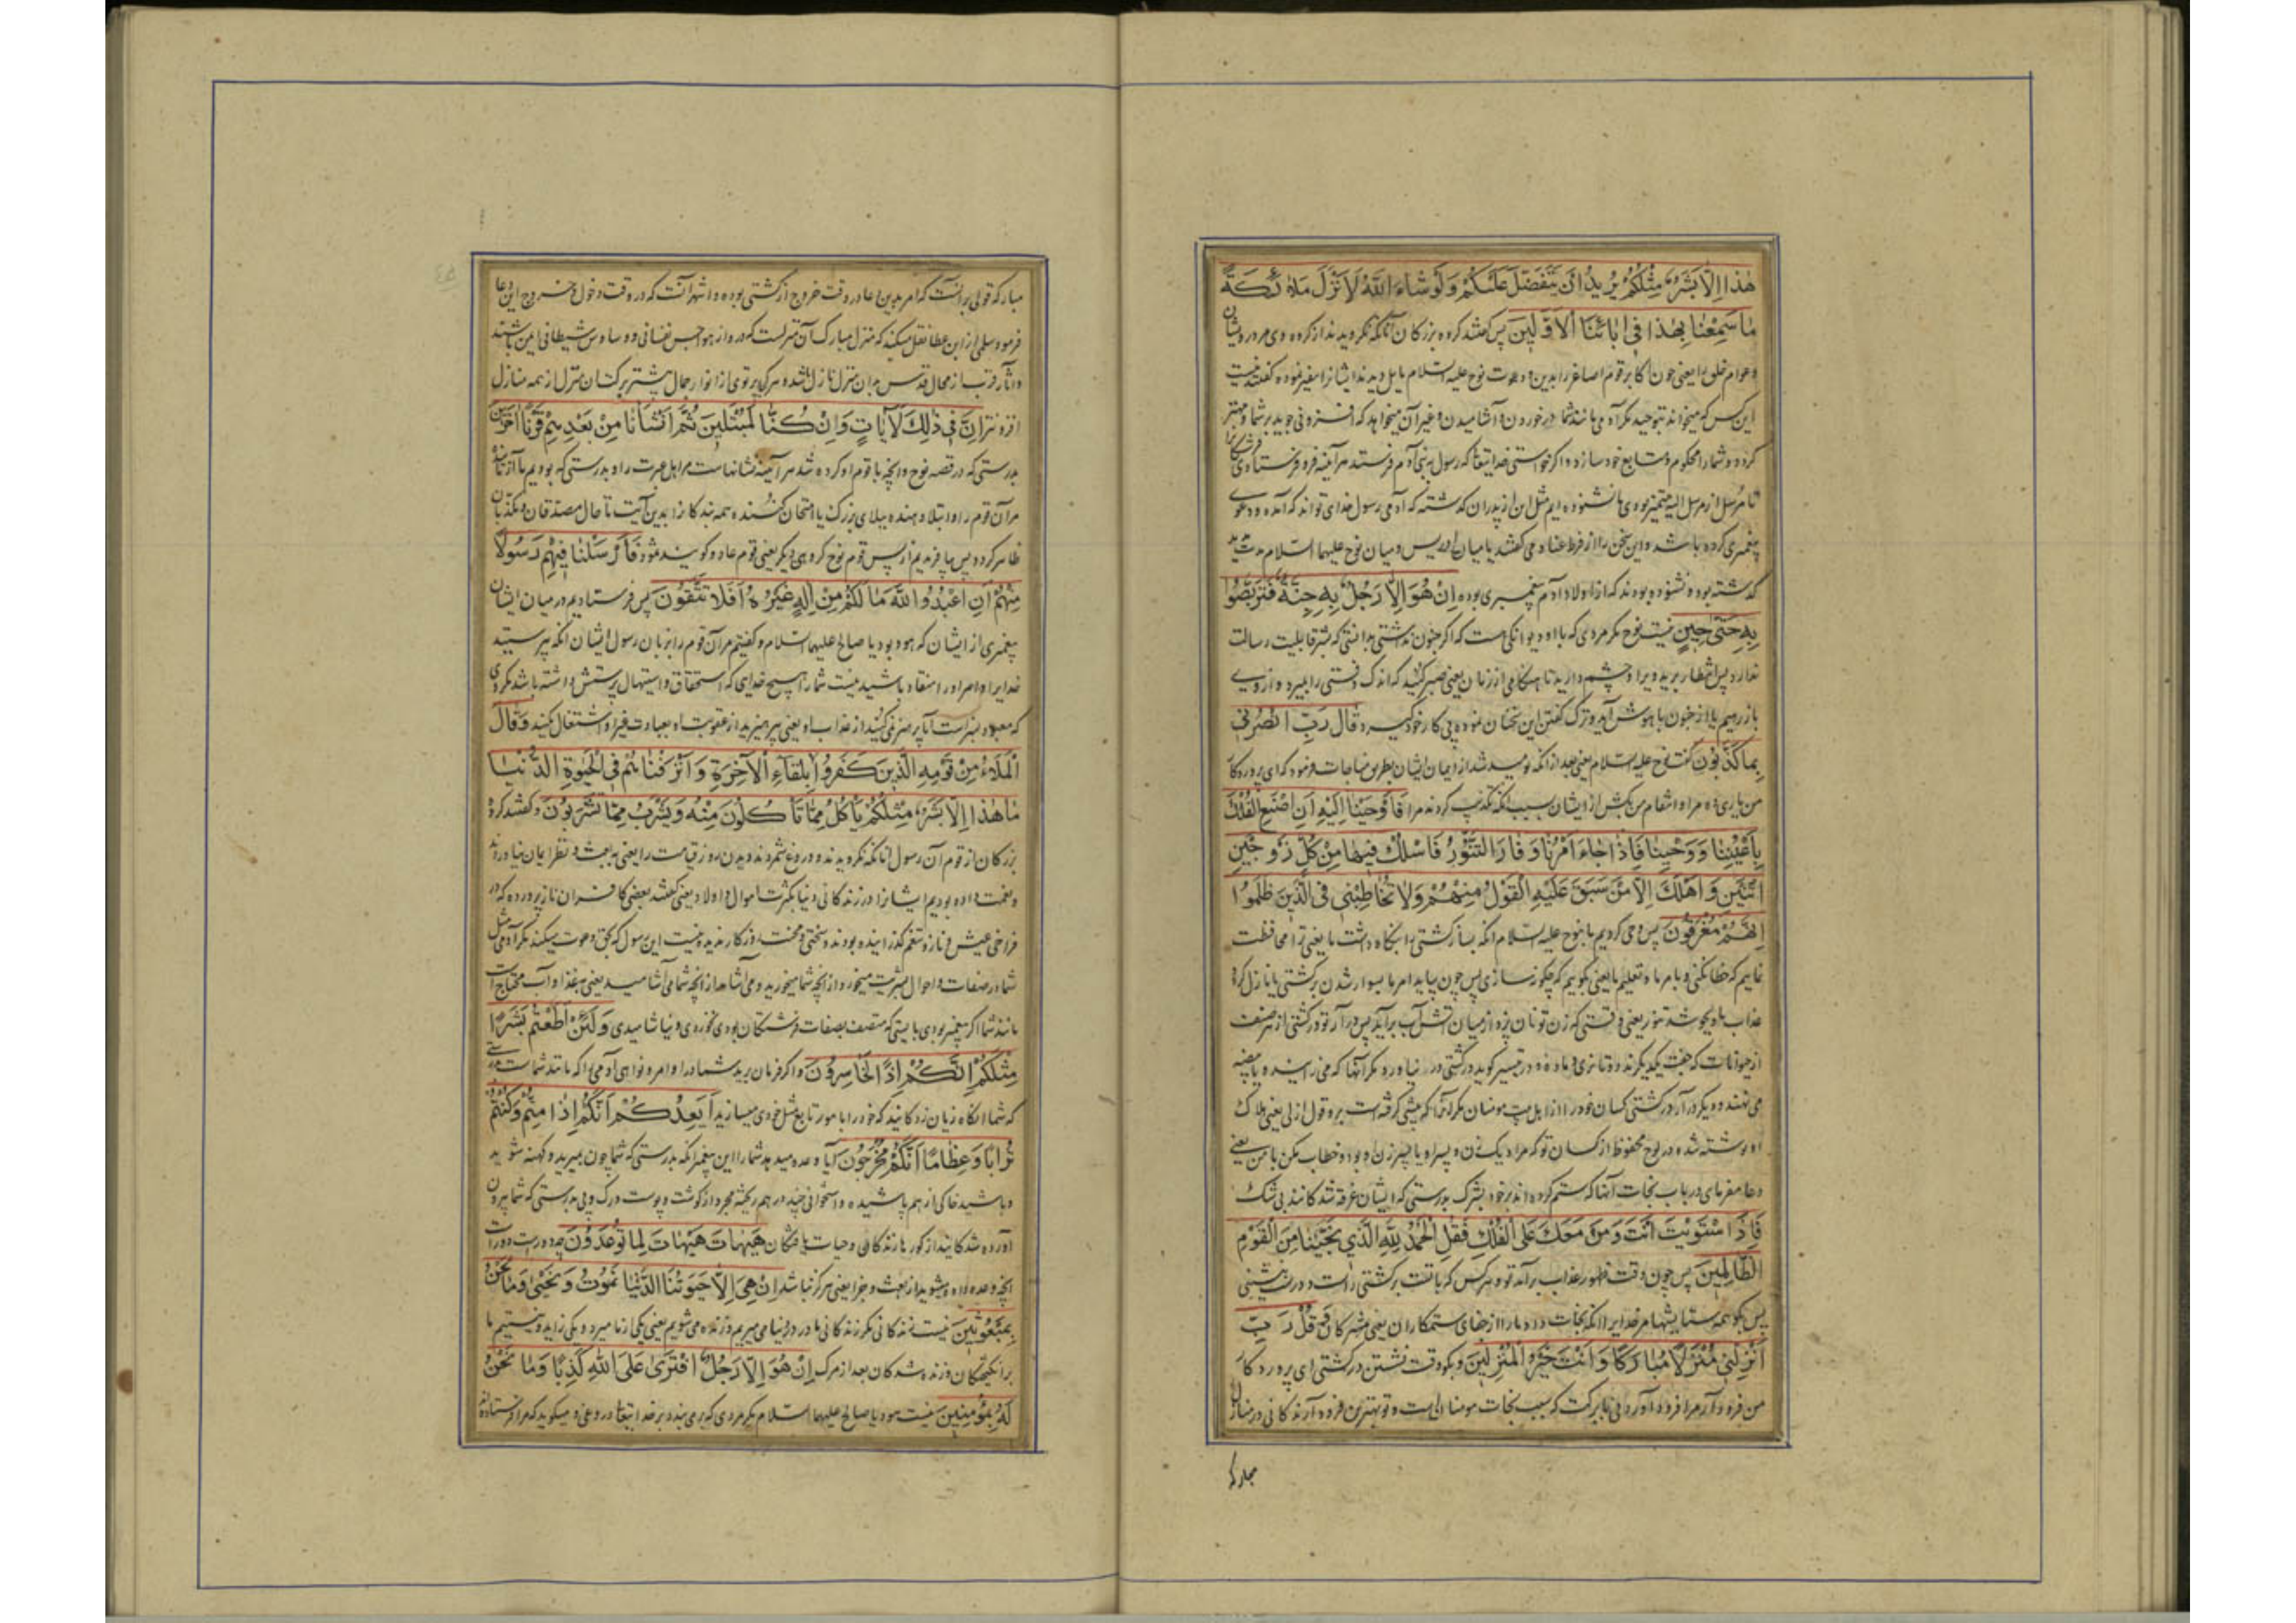 هٰذا اِلّا بَشَرٌ مِثْلُكُمْ يُريدُ اَنْ يَتَفَضَّلَ عَلَيْكُمْ وَلَوْ شاءَ اللّٰهُ لَاَنْزَلَ مَلائِكَةً
ما سَمِعْنا بِهٰذا في اٰبائِنَا الْاَوَّلينَ پس گفتند گروه بزرگان آنانکه نگرویدند از گروه وی مر درویشان
وعوام خلق را یعنی چون اکابر قوم اصاغر را بدین و دعوت نوح علیه السلام مایل دیدند ایشانرا متغیر نموده گفتند نیست
این کس که میخواند بتوحید مگر آدمی مانند شما در خوردن و آشامیدن و غیر آن میخواهد که افزونی جوید بر شما و مهتر
کردد و شما را محکوم و متابع خود سازد و اگر خواستی خدا یتعالی که رسول به بنی آدم فرستد هر آینه فرو فرستادی فرشتگانرا
تا مرسل از مرسل الیه متمیز بودی ما نشنوده ایم مثل این از پدران گذشته که آدمی رسول خدای تواند که آمده و دعوی
پیغمبری کرده باشد و این سخن را از فرط عناد می گفتند یا میان ادریس و میان نوح علیهما السلام مدت مدید
گذشته بوده و نشنوده بودند که از اولاد آدم پیغمبری بوده اِنْ هُوَ اِلّا رَجُلٌ بِهِ جِنَّةٌ فَتَرَبَّصُوا
بِهِ حَتّىٰ حينٍ نیست نوح مگر مردی که با او دیوانگی هست که اگر جنون نداشتی بدانستی که بشر قابلیت رسالت
ندارد پس انتظار برید ویرا و چشم دارید تا هنگامی از زمان یعنی صبر کنید که اندک وقتی را بمیرد و از وی
باز رهیم یا از جنون با هوش آید و ترک گفتن این سخنان نموده پی کار خود گیرد قالَ رَبِّ انْصُرْني
بِما كَذَّبُونِ گفت نوح علیه السلام یعنی بعد از آنکه نومید شد از ایمان ایشان بطریق مناجات فرمود که ای پروردگار
من یاری ده مرا و انتقام من بکش از ایشان بسبب آنکه تکذیب کردند مرا فَاَوْحَيْنا اِلَيْهِ اَنِ اصْنَعِ الْفُلْكَ
بِاَعْيُنِنا وَوَحْيِنا فَاِذا جاءَ اَمْرُنا وَفارَ التَّنُّورُ فَاسْلُكْ فيها مِنْ كُلٍّ زَوْجَيْنِ
اثْنَيْنِ وَاَهْلَكَ اِلّا مَنْ سَبَقَ عَلَيْهِ الْقَوْلُ مِنْهُمْ وَلا تُخاطِبْني فِي الَّذينَ ظَلَمُوا
اِنَّهُمْ مُغْرَقُونَ پس وحی کردیم ما بنوح علیه السلام آنکه بساز کشتی را بنگاه داشت ما یعنی ترا محافظت
نماییم که خطا نکنی و بامر ما و تعلیم ما یعنی بگوییم که چگونه سازی پس چون بیاید امر ما بسوار شدن بر کشتی یا نازل کردن
عذاب و بجوشد تنور یعنی وقتی که زن تو نان پزد از میان آتش آب برآید پس در آر تو در کشتی از هر صنف
از حیوانات که جفت یکدیگرند دو تا نری و ماده و در تیسیر گوید در کشتی در نیاورد مگر آنها که می زایند یا بیضه
می نهند و دیگر در آر در کشتی کسان خود را از اهل بیت مومنان مگر آنرا که پیشی گرفته است برو قول ازلی یعنی هلاک
او نوشته شده در لوح محفوظ از کسان تو که مراد یک زن و پسر او یا پسر زن او بود و خطاب مکن با من یعنی
دعا مفرمای در باب نجات آنها که ستم کرده اند بر خود بشرک بدرستی که ایشان غرقه شدگانند بی شک
فَاِذَا اسْتَوَيْتَ اَنْتَ وَمَنْ مَعَكَ عَلَى الْفُلْكِ فَقُلِ الْحَمْدُ لِلّٰهِ الَّذي نَجّانا مِنَ الْقَوْمِ
الظّالِمينَ پس چون وقت ظهور عذاب برآئی تو و هر کس که با تست بر کشتی راست و درست بنشینی
پس بگو همه ستایشها مر خدایرا آنکه نجات داد ما را از جفای ستمکاران یعنی مشرکان وَقُلْ رَبِّ
اَنْزِلْني مُنْزَلًا مُبارَكًا وَاَنْتَ خَيْرُ الْمُنْزِلينَ و بگو وقت نشستن در کشتی ای پروردگار
من فرود آر مرا فرود آوردنی با برکت که سبب نجات مومنان است و تو بهترین فرود آرندگانی در منازل
مبارکه
مبارکه قولی بر آنست که امر بدین دعا در وقت خروج از کشتی بوده و اشهر آنست که در وقت دخول و خروج این دعا
فرمود سلمی از ابن عطا نقل میکند که منزل مبارک آن منزلست که درو از هواجس نفسانی و وساوس شیطانی ایمن باشند
و آثار قرب از محال قدس بدان منزل نازل باشد و هر کی پرتوی از انوار جمال بیشتر برکت آن منزل از همه منازل
افزونتر اِنَّ في ذٰلِكَ لَاٰياتٍ وَاِنْ كُنّا لَمُبْتَلينَ ثُمَّ اَنْشَأْنا مِنْ بَعْدِهِمْ قَرْنًا اٰخَرينَ
بدرستی که در قصه نوح و آنچه با قوم او کرده شد هر آینه نشانهاست مر اهل عبرت را و بدرستی که بودیم ما آزماینده
مر آن قوم را و ابتلا دهنده ببلای بزرگ یا امتحان کننده همه بندگانرا بدین آیت تا حال مصدقان و مکذبان
ظاهر گردد پس ما آفریدیم از پس قوم نوح گروهی دیگر یعنی قوم عاد و گویند ثمود فَاَرْسَلْنا فيهِمْ رَسُولًا
مِنْهُمْ اَنِ اعْبُدُوا اللّٰهَ ما لَكُمْ مِنْ اِلٰهٍ غَيْرُهُ اَفَلا تَتَّقُونَ پس فرستادیم در میان ایشان
پیغمبری از ایشان که هود بود یا صالح علیهما السلام و گفتیم مر آن قوم را بزبان رسول ایشان آنکه بپرستید
خدایرا و اوامر او را منقاد باشید نیست شما را هیچ خدای که استحقاق و استیهال پرستش داشته باشد مگر وی
که معبود بسزاست آیا پرهیز نمی کنید از عذاب او یعنی بپرهیزید از عقوبت او بعبادت غیر او اشتغال مکنید وَقالَ
الْمَلَأُ مِنْ قَوْمِهِ الَّذينَ كَفَرُوا بِلِقاءِ الْاٰخِرَةِ وَاَتْرَفْناهُمْ فِي الْحَيٰوةِ الدُّنْيا
ما هٰذا اِلّا بَشَرٌ مِثْلُكُمْ يَأْكُلُ مِمّا تَأْكُلُونَ مِنْهُ وَيَشْرَبُ مِمّا تَشْرَبُونَ و گفتند گروه
بزرگان از قوم آن رسول آنانکه نگرویدند و دروغ شمردند دیدن روز قیامت را یعنی به بعث و نظر ایمان نیاوردند
و نعمت داده بودیم ایشانرا در زندگانی دنیا بکثرت اموال و اولاد یعنی گفتند بعضی کافران ناز پرورده که در
فراخی عیش و ناز و تنعم گذرانیده بودند و سختی و محنت روزگار ندیده نیست این رسول که بحق دعوت میکند مگر آدمی مثل
شما در صفات و احوال بشریت میخورد از آنچه شما میخورید و می آشامد از آنچه شما می آشامید یعنی بغذا و آب محتاج است
مانند شما اگر پیغمبر بودی بایستی که متصف بصفات فرشتگان بودی نخوردی و نیاشامیدی وَلَئِنْ اَطَعْتُمْ بَشَرًا
مِثْلَكُمْ اِنَّكُمْ اِذًا لَخاسِرُونَ و اگر فرمان برید شما در اوامر و نواهی آدمی را که مانند شماست
که شما آنگاه زیان زدگانید که خود را مامور تابع مثل خودی میسازید اَيَعِدُكُمْ اَنَّكُمْ اِذا مِتُّمْ وَكُنْتُمْ
تُرابًا وَعِظامًا اَنَّكُمْ مُخْرَجُونَ آیا وعده میدهد شما را این پیغمبر آنکه بدرستی که شما چون بمیرید و کهنه شوید
و باشید خاکی از هم پاشیده و استخوانی چند در هم ریخته مجرد از گوشت و پوست و رگ و پی بدرستی که شما بیرون
آورده شدگانید از گور با زندگانی و حیات یافتگان هَيْهاتَ هَيْهاتَ لِما تُوعَدُونَ چه دورست دورست
آنچه وعده داده میشوید از بعث و جزا یعنی هرگز نباشد اِنْ هِيَ اِلّا حَيٰوتُنَا الدُّنْيا نَمُوتُ وَنَحْيىٰ وَما نَحْنُ
بِمَبْعُوثينَ نیست زندگانی مگر زندگانی ما در دنیا می میریم و زنده می شویم یعنی یکی از ما میرد و یکی زاید و نیستیم ما
برانگیختگان و زنده شدگان بعد از مرگ اِنْ هُوَ اِلّا رَجُلٌ افْتَرىٰ عَلَى اللّٰهِ كَذِبًا وَما نَحْنُ
لَهُ بِمُؤْمِنينَ نیست هود یا صالح علیهما السلام مگر مردی که بر می بندد بر خدا یتعالی دروغی و میگوید که مرا فرستاده